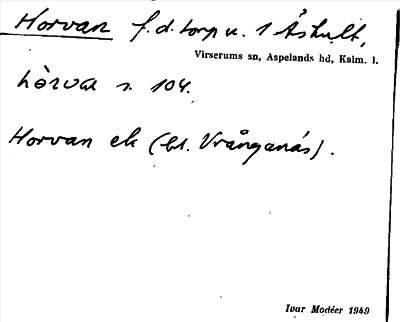 Horvan f. d. torp u. 1 Åshult,
Virserums sn, Aspelands hd, Kalm. l.
hòrva s. 104.
Horvan ek (bl. Vrånganäs).
Ivar Modéer 1949